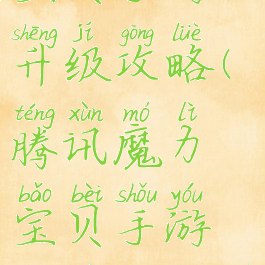 shēng jí gōng lüè
升级攻略(
téng xùn mó lì
腾讯魔力
bǎo bèi shǒu yóu
宝贝手游